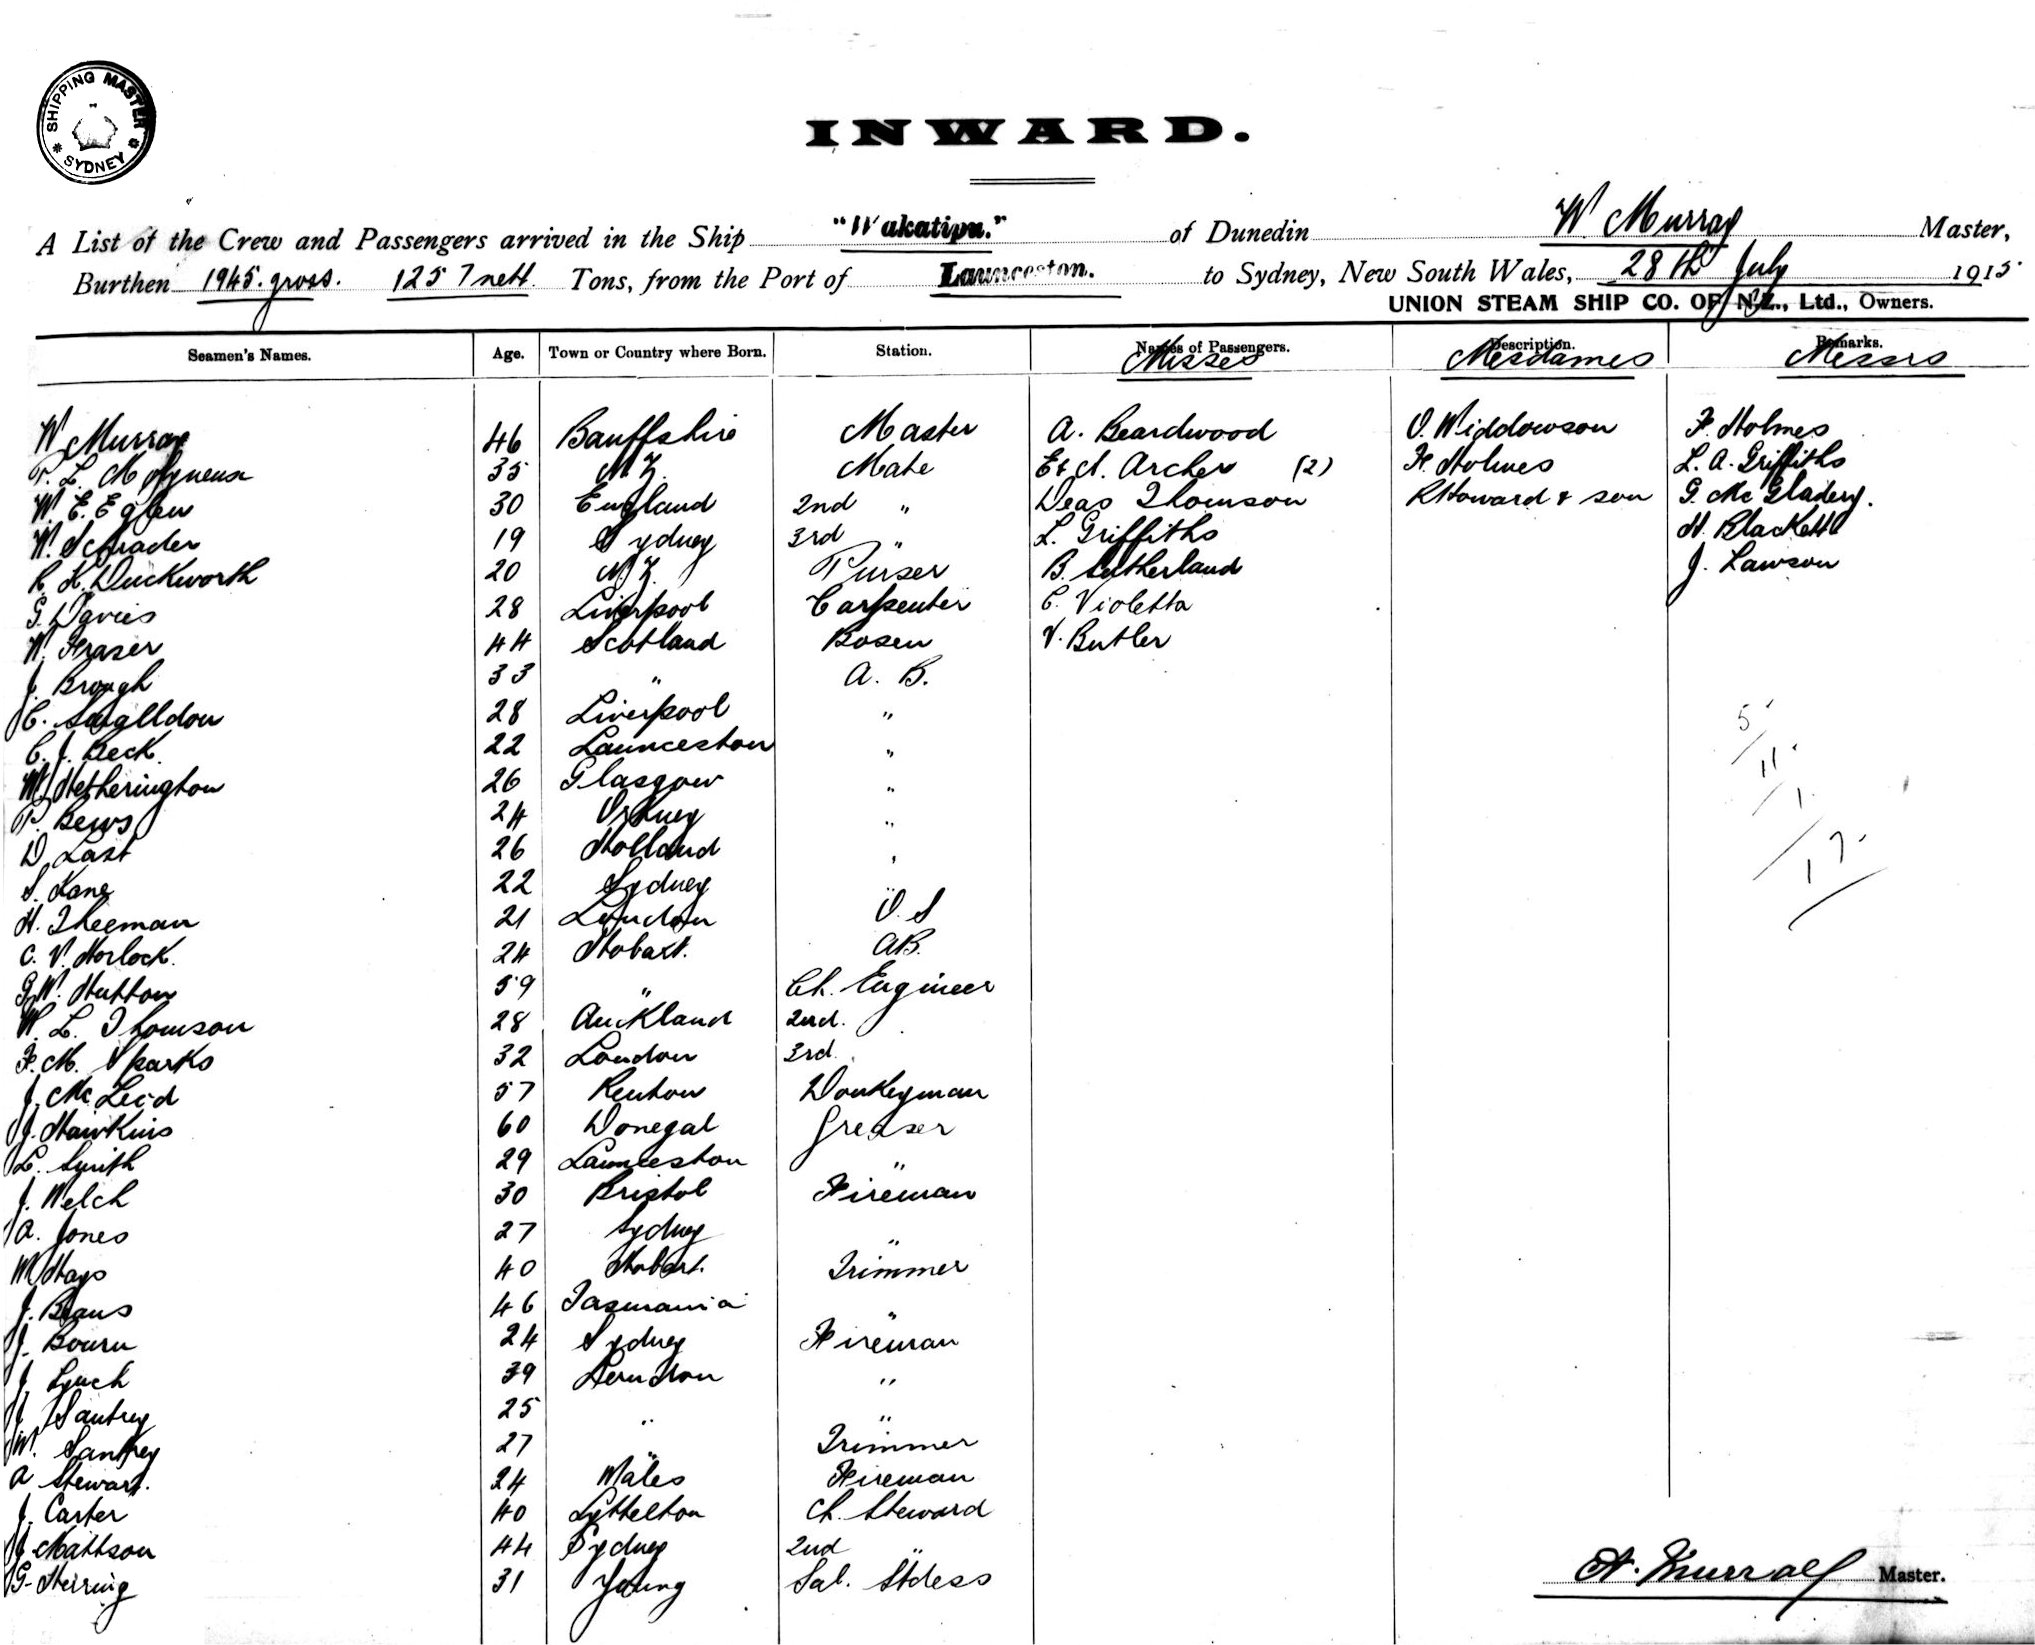 SHIPPING MASTER
* SYDNEY *
INWARD.
A List of the Crew and Passengers arrived in the Ship "Wakatipu." of Dunedin W. Murray Master,
Burthen 1945 gross. 1257 nett. Tons, from the Port of Launceston. to Sydney, New South Wales, 28th July 1915
UNION STEAM SHIP CO. OF N.Z., Ltd., Owners.
Seamen's Names. Age. Town or Country where Born. Station. Names of Passengers. Description. Remarks.
Misses Mesdames Messrs
W Murray 46 Banffshire Master A. Beardwood O. Widdowson F. Holmes
P. L. Molyneux 35 N Z. Mate E & A. Archer (2) F. Holmes L. A. Griffiths
W. E. Eglen 30 England 2nd " Deas Thomson R Howard & son G. McGladery.
W. Schrader 19 Sydney 3rd " L. Griffiths H. Blackett
R. K. Duckworth 20 N Z. Purser B. Sutherland J. Lawson
G. Davies 28 Liverpool Carpenter C. Violetta
W. Fraser 44 Scotland Bosen V. Butler
J. Brough 33 " A. B.
C. 28 Liverpool "
C. J. Beck. 22 Launceston "
W Hetherington 26 Glasgow "
P. Bews 24 Orkney "
D. Last 26 Holland "
S. Kane 22 Sydney "
H. Theeman 21 London O. S
C. V. Horlock. 24 Hobart. AB.
G W. Hutton 59 " Ch. Engineer
W. L. Thomson 28 Auckland 2nd.
F. M. Sparks 32 London 3rd.
J. McLeod 57 Renton Donkeyman
J. Hawkins 60 Donegal Greaser
L. Smith 29 Launceston "
J. Welch 30 Bristol Fireman
A. Jones 27 Sydney "
W Hays 40 Hobart. Trimmer
J. 46 Tasmania "
J. Bourn 24 Sydney Fireman
J Lynch 39 London "
J Santry 25 " "
W. Santry 27 " Trimmer
A Stewart. 24 Wales Fireman
J. Carter 40 Lyttelton Ch. Steward
J Mattson 44 Sydney 2nd "
G. Herring 31 Young Sal. Stdess
5
11
1
17
Master.